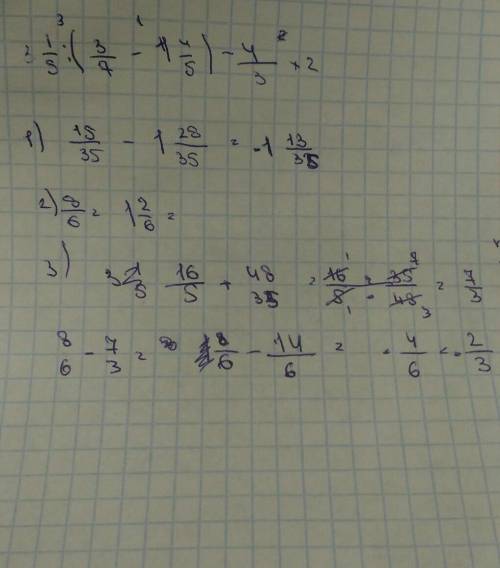 3 1
3 1/5 : ( 3/7 - 1 4/5 ) - 4/3 × 2
1) 15/35 - 1 28/35 = -1 13/35
2) 8/6 = 1 2/6 =
3) 3 1/5 16/5 + 48/35 = 16/5 · 35/48 = 7/3
8/6 - 7/3 = 8/6 - 14/6 = - 4/6 = - 2/3